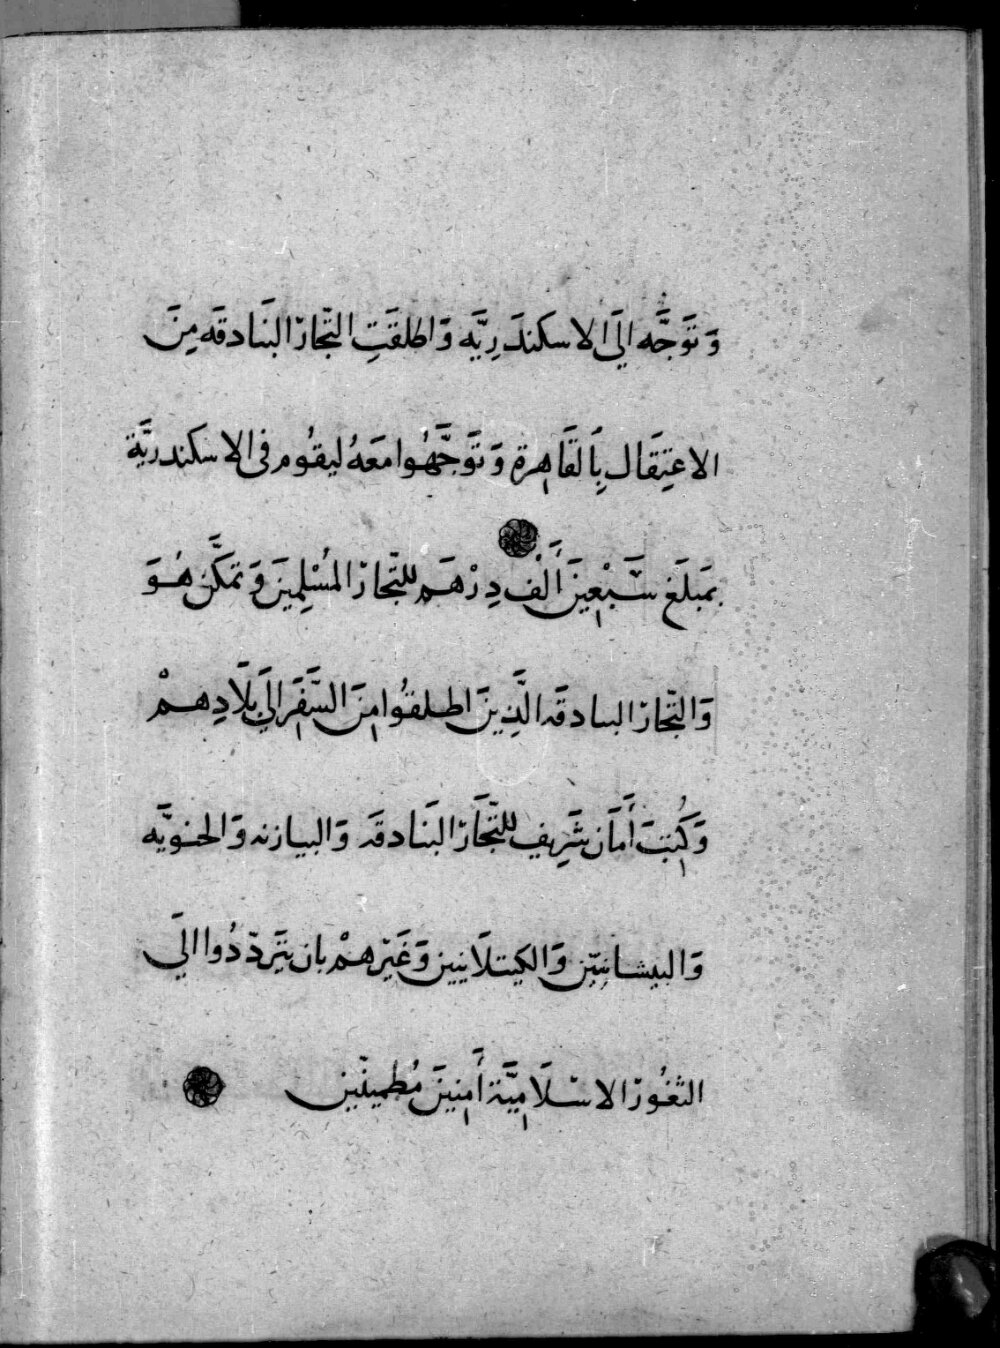 وَتَوَجَّه اليَ الاسكندَرِيَّه وَاطلقَتِ التّجار البَنادقَه مِنَ
الاعتِقَال بِالقَاهِرة وَتَوَجَّهُوا مَعَهُ ليقُوم فى الاسكندريَّة
بمَبلَغ سَبْعِينَ أَلْف دِرْهَم للتّجار المُسْلِمِينَ وَتمَكَّن هُوَ
وَالتّجار البنادقَه الَّذِينَ اطلقُوا مِنَ السَّفَر اليَ بِلَادِهمْ
وَكُتِبَ أَمَان شَرِيف للتّجَار البَنادقَه وَالبيازنه وَالجنويَّه
وَالبيشانيّين وَالكيتلَانيين وَغَيْرهمْ بان يَتَردّدُوا اليَ
الثغُور الاسْلَامِيَّة أَمِنِينَ مُطمينّين